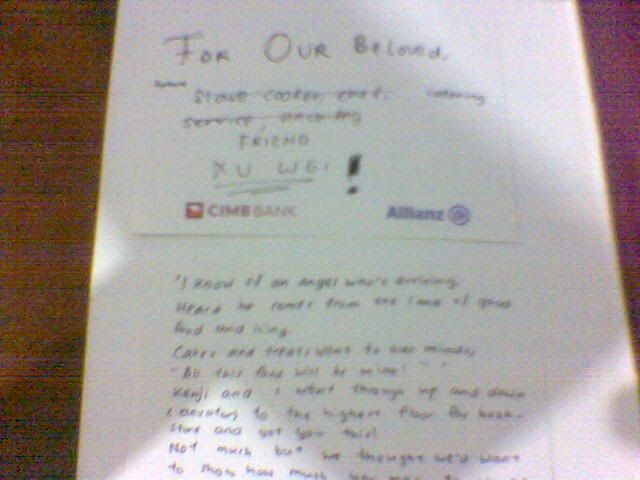 FOR OUR BELOVED,
Slave cooker, chef, catering
service,
FRIEND
XU WEI !
CIMB BANK Allianz
"I know of an angel who's arriving
Heard he comes from the land of good
food and icing
Cakes and treats went to our minds,
"All this food will be mine!"
Kenji and I went through up and down
elevators to the highest floor for book-
store and got you this!
Not much but we thought we'd want
to show how much you mean to